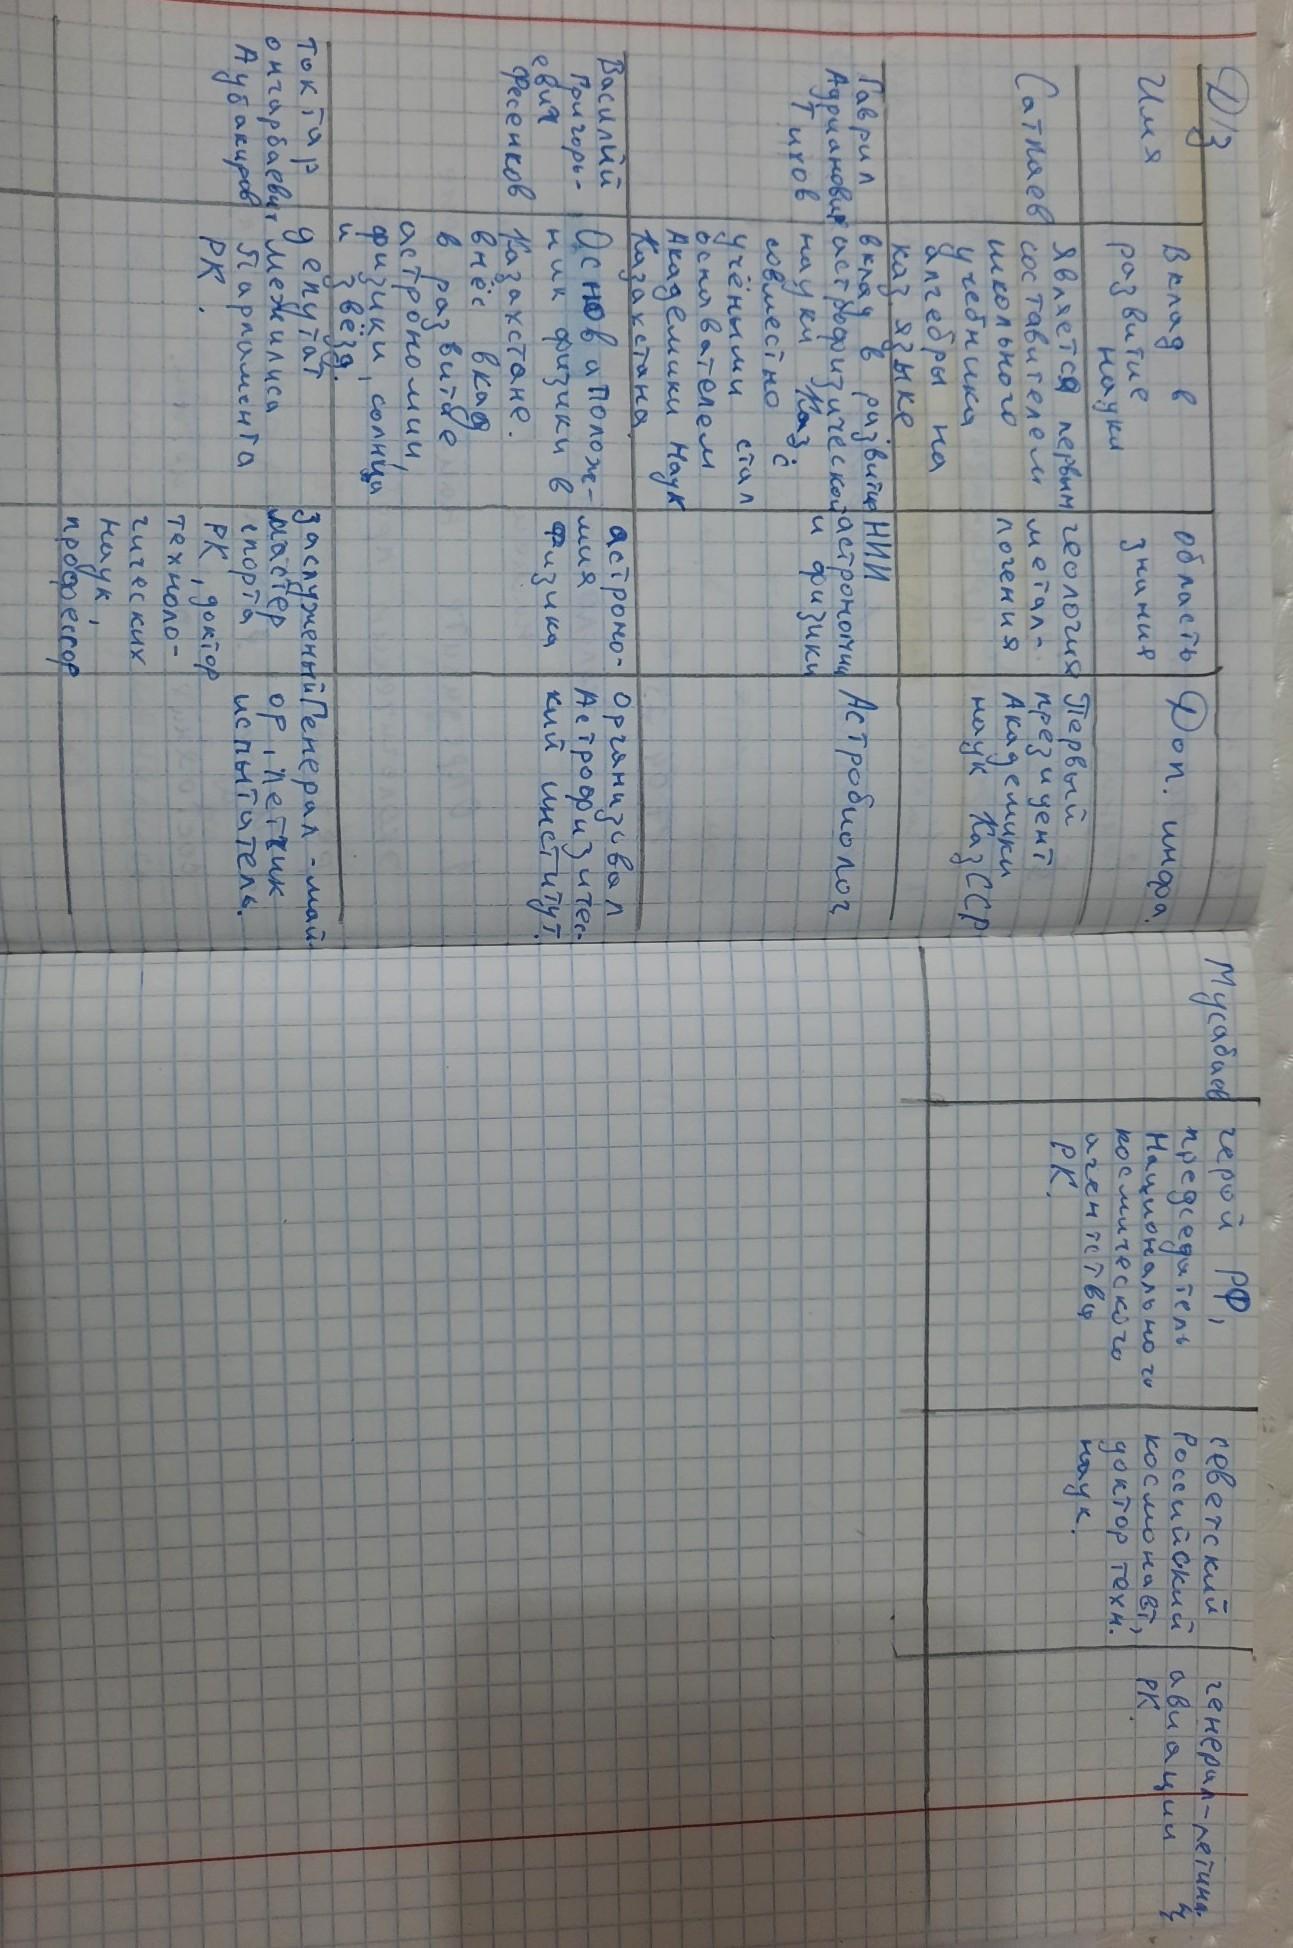 Д/з
Имя
Вклад в
развитие
науки
область
знания
Доп. инфа.
Сатпаев
Является первым
составителем
школьного
учебника
алгебры на
каз языке
геология
метал-
логения
Первый
президент
Академики
наук КазССР
Гаврил
Адрианович
Тихов
вклад в развитие
астрофизической
науки Каз.
совместно с
учёными стал
основателем
Академики Наук
Казакстана
НИИ
астрономии
и физики
Астробиолог
Василий
Григорь-
евич
Фесенков
Основаполож-
ник физики в
Казакстане.
внёс вкад
в развитие
астрономии,
физики, солнца
и звёзд.
астроно-
мия
физика
Организовал
Астрофизичес-
кий институт.
Токтар
онгарбаевич
Аубакиров
депутат
межилиса
Парламента
РК.
заслуженый
мастер
спорта
РК, доктор
техноло-
гических
наук,
профессор
Генерал-май-
ор, Летчик
испытатель.
Мусабаев
герой РФ,
председатель
Национального
космического
агентства
РК.
севетский
Российский
космонавт,
доктор техн.
наук.
генерал-летина.
авиации
РК.